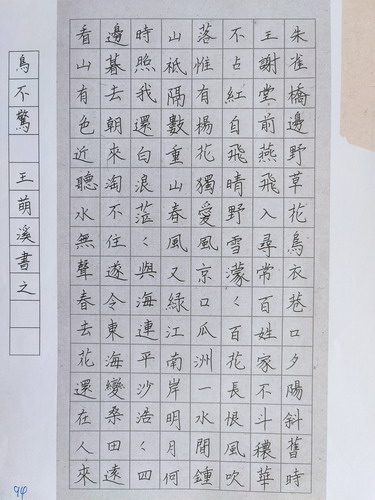 朱雀橋邊野草花烏衣巷口夕陽斜舊時
王謝堂前燕飛入尋常百姓家不斗穠華
不占紅自飛晴野雪濛々百花長恨風吹
落惟有楊花獨愛風京口瓜洲一水間鍾
山祇隔數重山春風又綠江南岸明月何
時照我還白浪茫々與海連平沙浩々四
邊暮去朝來淘不住遂令東海變桑田遠
看山有色近聽水無聲春去花還在人來
鳥不驚 王萌溪書之